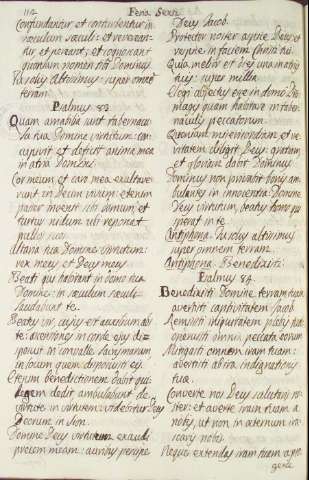 114
Feria Sexta
Confundantur et conturbentur in
sæculum sæculi: et reverean-
tur et pereant, et cognoscant
quoniam nomen tibi Dominus
Tu solus Altissimus super omnem
terram.
Psalmus 83
Quam amabilia sunt tabernacu-
la tua Domine virtutum: con-
cupivit et deficit anima mea
in atria Domini.
Cor meum et caro mea exultave-
runt in Deum vivum: etenim
passer invenit sibi domum: et
turtur nidum ubi reponat
pullos
Altaria tua Domine virtutum:
rex meus et Deus meus
Beati qui habitant in domo tua
Domine: in sæculum sæculi
laudabunt te.
Beatus vir, cujus est auxilium abs
te: ascensiones in corde suo dis-
posuit in convalle lacrymarum
in locum quem disposuit
Etenim benedictionem dabit
legem dedit ambulabunt de
virtute in virtutem videbitur Deus
Deorum in Sion.
Domine Deus virtutum exaudi
precem meam: auribus percipe
Deus Jacob.
Protector noster aspice Deus et
respice in faciem Christi tui.
Quia melior est dies una in atriis
tuis: super mella
Elegi abjectus esse in domo Dei
magis quam habitare in taber-
naculis peccatorum.
Quoniam misericordiam et ve-
ritatem diligit Deus: gratiam
et gloriam dabit Dominus
Dominus non privabit bonis am-
bulantes in innocentia Domine
Deus virtutum, beatus homo qui
sperat in te
Antiphona. Tu solus altissimus
super omnem terram.
Antiphona. Benedixisti.
Psalmus 84.
Benedixisti Domine terram tuam
avertisti captivitatem Jacob.
Remisisti iniquitatem plebis tuæ
operuisti omnia peccata eorum
Mitigasti omnem iram tuam:
avertisti ab ira indignationis
tuæ.
Converte nos Deus salutaris nos-
ter: et averte iram tuam a
nobis, ut non in æternum iras-
caris nobis
Neque extendas iram tuam a pro-
genie